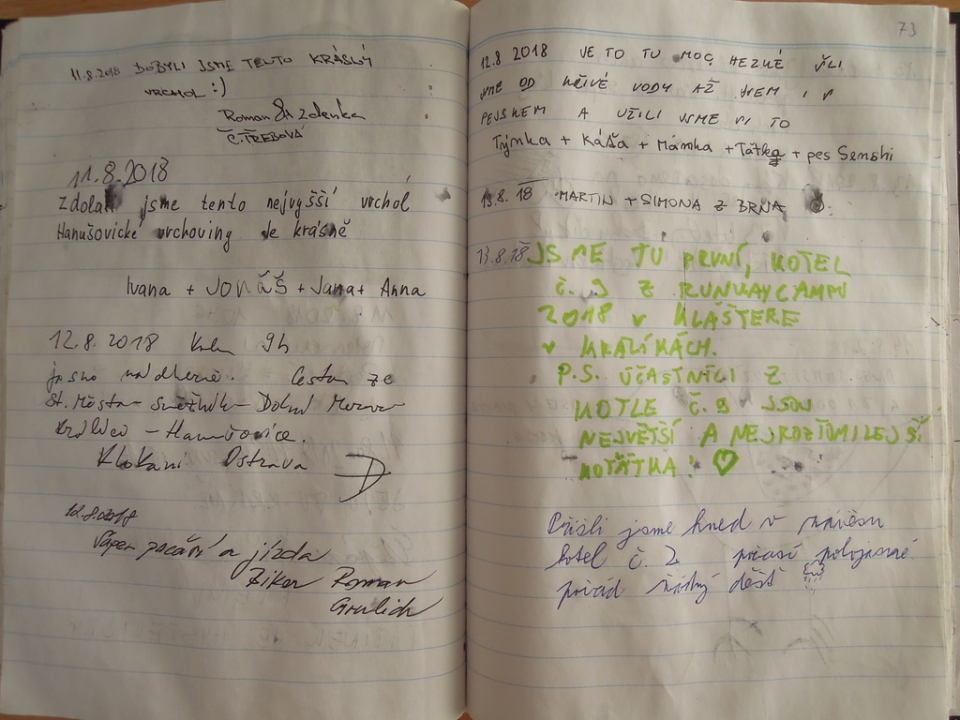 11.8.2018 DOBYLI JSME TENTO KRÁSNÝ
VRCHOL :)
Roman & Zdenka
Č. TŘEBOVÁ
11.8.2018
Zdolali jsme tento nejvyšší vrchol
Hanušovické vrchoviny Je krásně
Ivana + JONÁŠ + Jana + Anna
12.8.2018 9h
jasno nádherně. Cestou ze
St. Města - Sněžník - Dolní Morava
Králíky - Hanušovice.
Klokani Ostrava
12.8.2018
Vápen počasí a jízda
Biker Roman
Grulich
73
12.8 2018 JE TO TU MOC HEZKÉ ŠLI
JSME OD KŘIVÉ VODY AŽ SEM I S
PEJSKEM A UŽILI JSME SI TO
Týnka + Káša + Mamka + Taťka + pes Senshi
13.8.18 MARTIN + SIMONA Z BRNA
13.8.18 JSME TU PRVNÍ, KOTEL
Č. 9 Z RUNWAYCAMPU
2018 V KLÁŠTEŘE
V KRÁLÍKÁCH.
P.S. ÚČASTNÍCI Z
KOTLE Č. 9 JSOU
NEJVĚTŠÍ A NEJROZTOMILEJŠÍ
KOŤÁTKA! ♡
Přišli jsme hned v závěsu
kotel č. 2 počasí polojasné
pořád žádný déšť